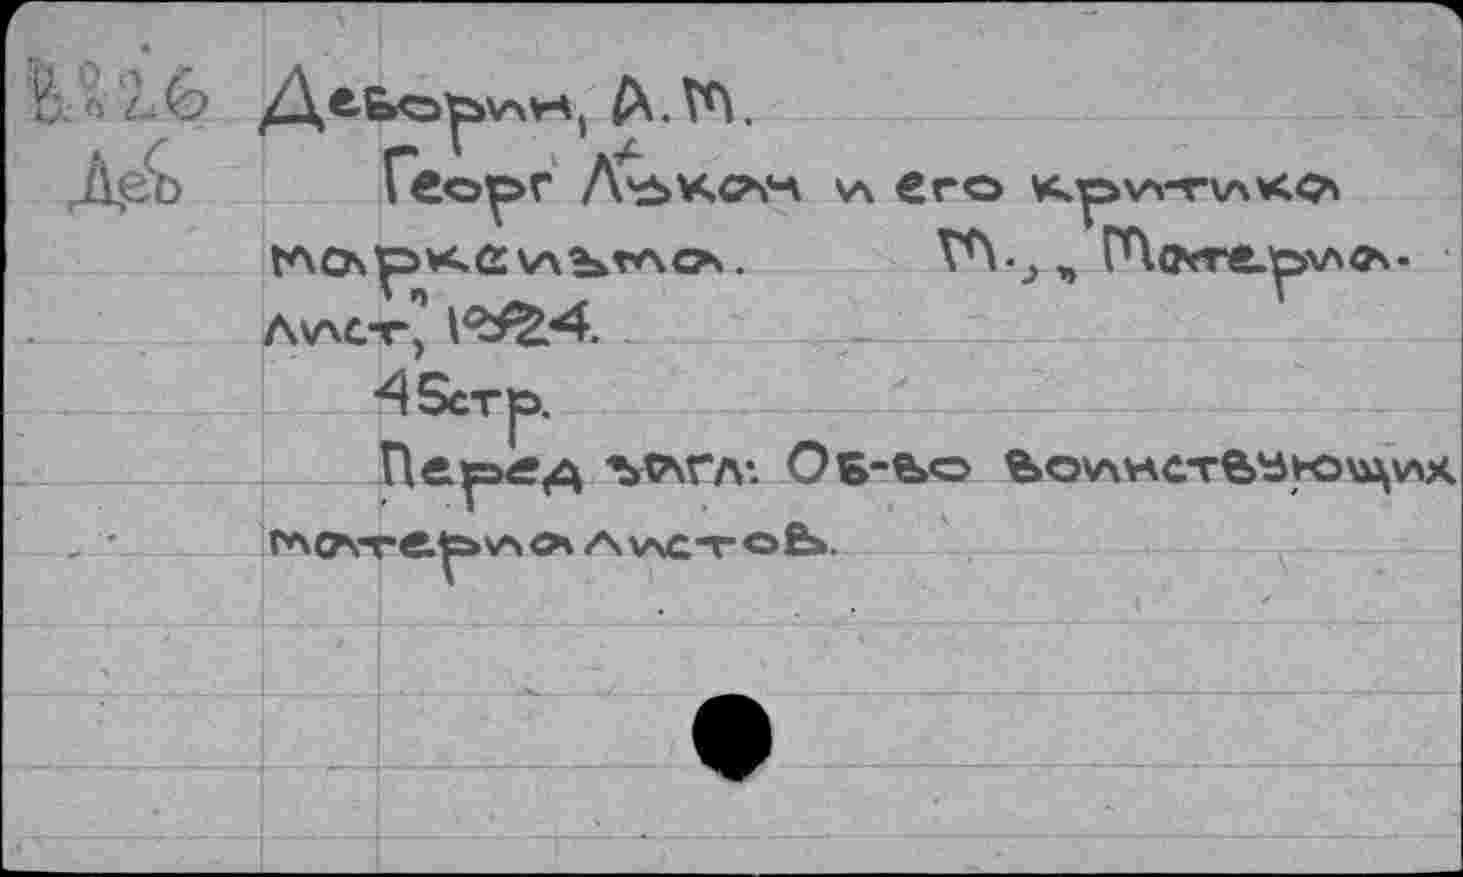 Деборин, А.М.
Деб
Георг Лукач и его критика
марксизма. М., „Материа-
лист", 1924.
45стр.
Перед загл: Об-во воинствующих
материалистов.